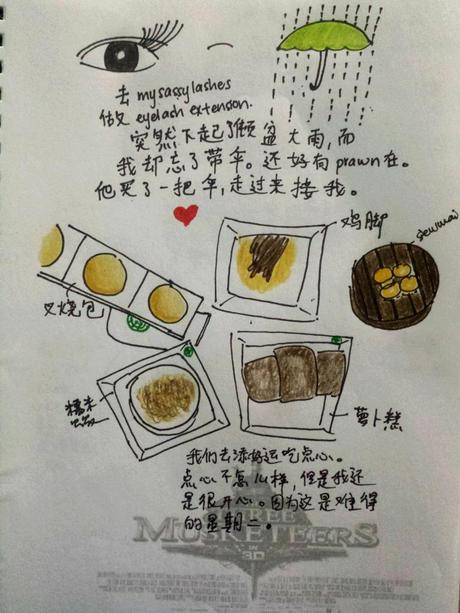 去 mysassylashes
做 eyelash extension.
突然下起了倾盆大雨，而
我却忘了带伞。还好有 prawn 在。
他买了一把伞，走过来接我。
鸡脚
siewmai
叉烧包
糯米
萝卜糕
我们去添好运吃点心。
点心不怎么样，但是我还
是很开心。因为这是难得
的星期二。
THREE
MUSKETEERS
3D